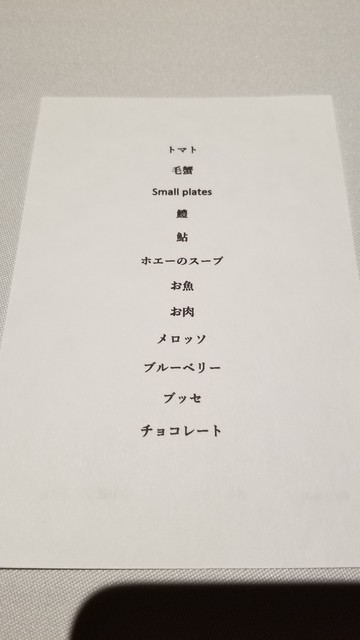 トマト
毛蟹
Small plates
鱧
鮎
ホエーのスープ
お魚
お肉
メロッソ
ブルーベリー
ブッセ
チョコレート